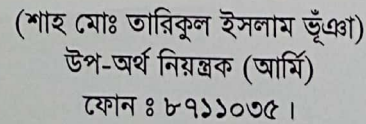 (শাহ মোঃ তারিকুল ইসলাম ভূঁঞা)
উপ-অর্থ নিয়ন্ত্রক (আর্মি)
ফোন ঃ ৮৭১১০৭৫ ।